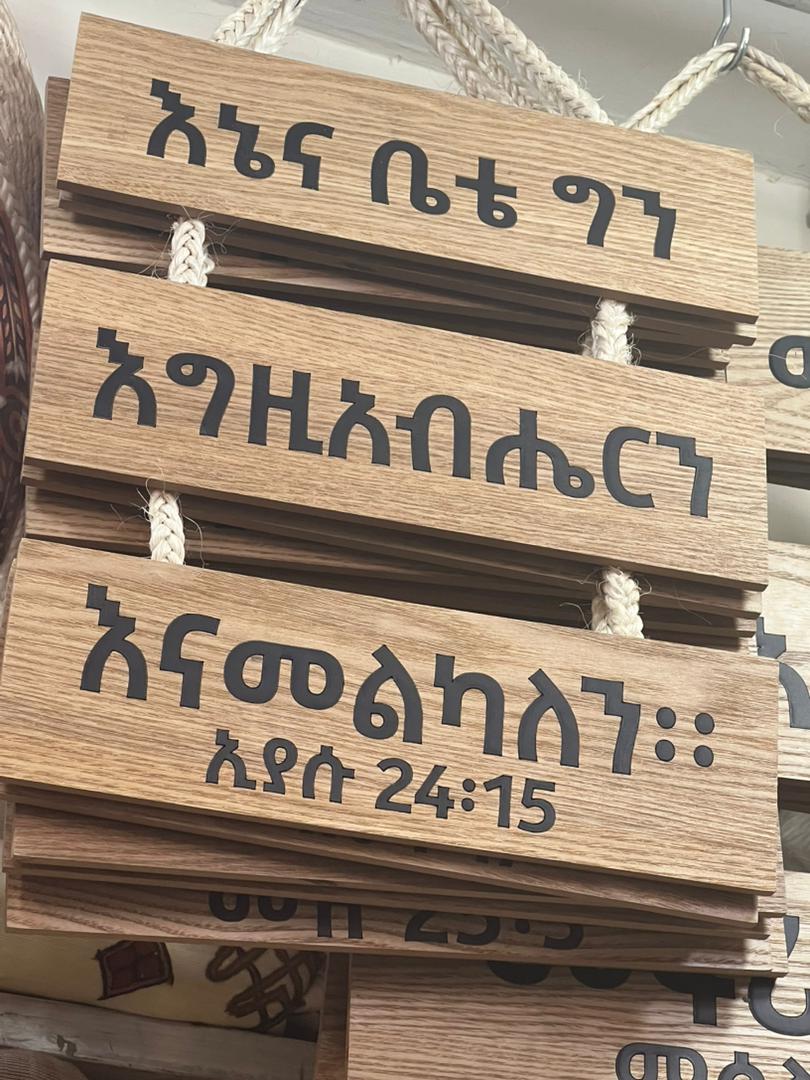 እኔና ቤቴ ግን
እግዚአብሔርን
እናመልካለን።
ኢያሱ 24፡15